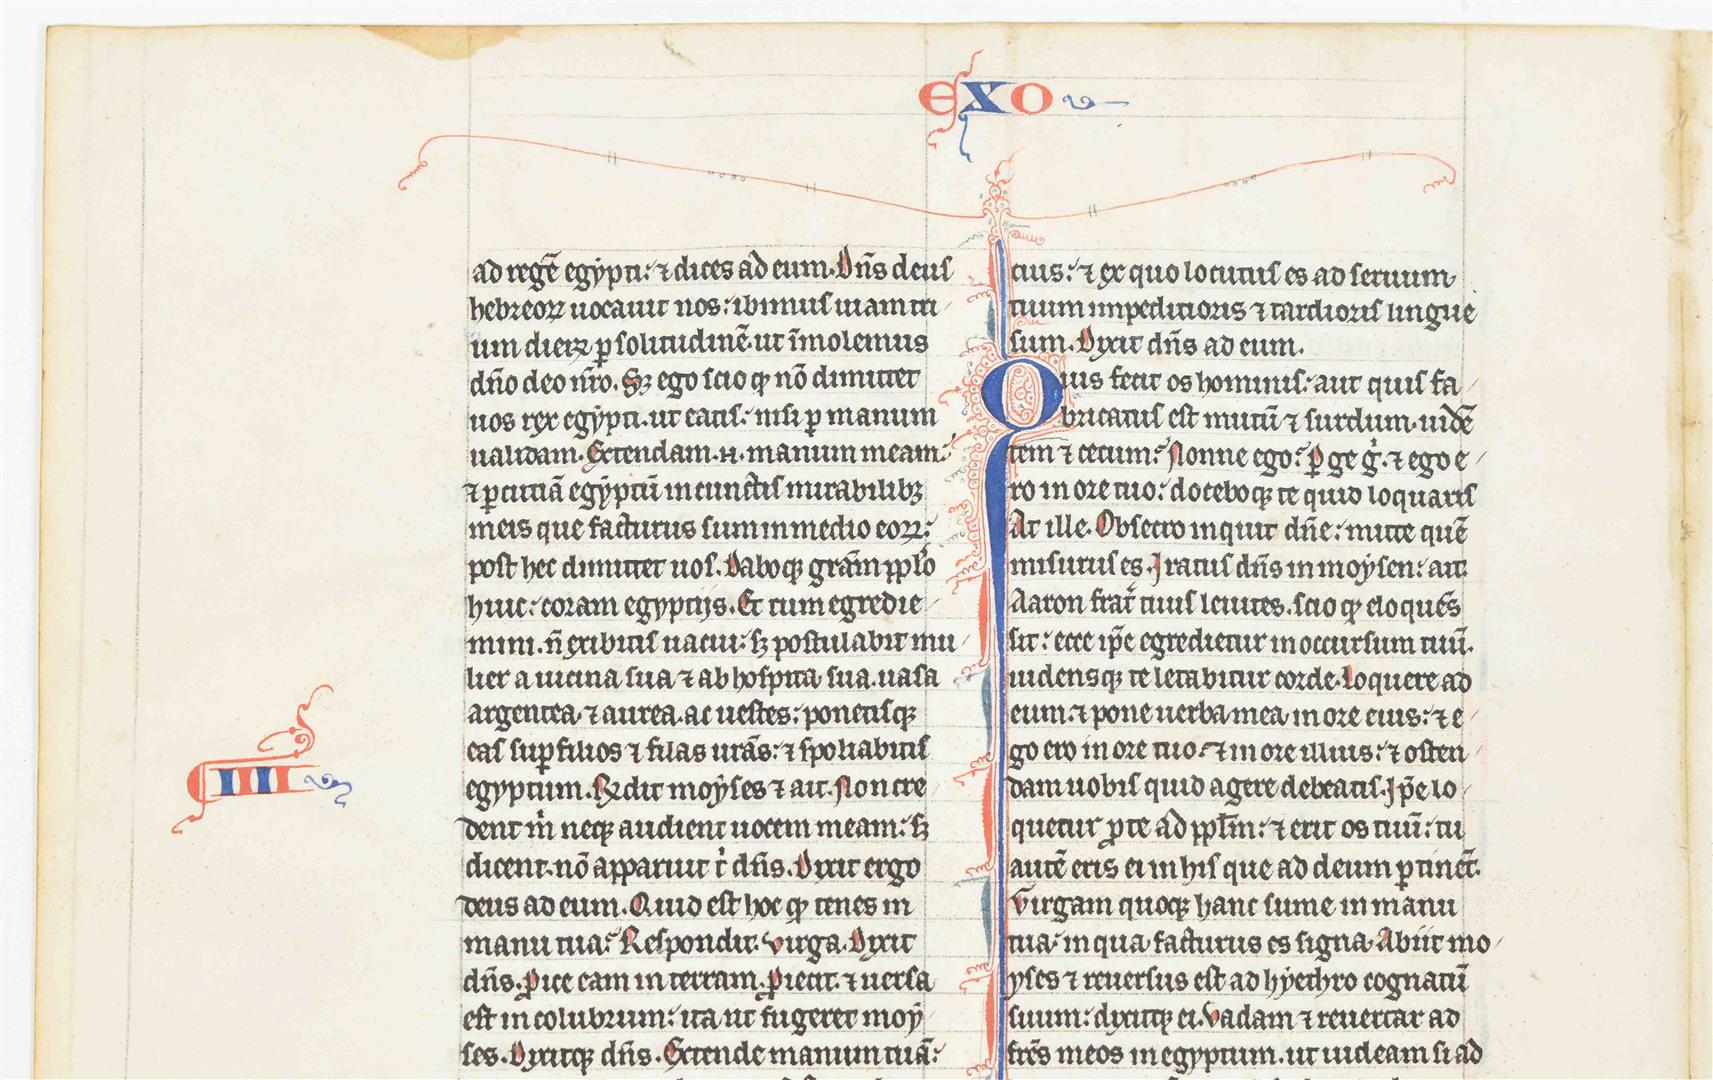 EXO
ad regē egypti: ⁊ dices ad eum. Dn̄s deus
hebreoꝝ uocauit nos: ibimus uiam tri
um dieꝝ ꝑ solitudinē. ut īmolemus
dn̄o deo nr̄o. Sꝫ ego scio ꝙ nō dimittet
uos rex egypti. ut eatis: nisi ꝑ manum
ualidam. Extendam .n. manum meam:
⁊ ꝑcutiā egyptū in cunctis mirabilibꝫ
meis que facturus sum in medio eoꝝ:
post hec dimittet uos. Daboqꝫ grām pplo
huic: coram egyptijs. Et cum egredie
mini. n̄ exibitis uacui: sꝫ postulabit mu
lier a uicina sua ⁊ ab hospita sua. uasa
argentea ⁊ aurea. ac uestes: ponetisqꝫ
eas suꝑ filios ⁊ filas urās: ⁊ spoliabitis
egyptum. Rn̄dit moyses ⁊ ait. Non cre
IIII
dent m̄ neqꝫ audient uocem meam: sꝫ
dicent. nō apparuit t̄ dn̄s. Dixit ergo
deus ad eum. Quid est hoc ꝙ tenes in
manu tua? Respondit. uirga. Dixit
dn̄s. Proice eam in terram. Proiecit. ⁊ uersa
est in colubrum: ita ut fugeret moy
ses. Dixitqꝫ dn̄s. Extende manum tuā:
tius: ⁊ ex quo locutus es ad seruum
tuum impeditioris ⁊ tardioris lingue
sum. Dixit dn̄s ad eum.
Quis fecit os hominis: aut quis fa
bricatus est mutū ⁊ surdum. uidē
tem ⁊ cecum? Nonne ego? Perge ḡ. ⁊ ego e
ro in ore tuo: doceboqꝫ te quid loquaris
At ille. Obsecro inquit dn̄e: mitte quē
misurus es. Iratus dn̄s in moysen: ait.
Aaron frat̄ tuus leuites. scio ꝙ eloquēs
sit: ecce ip̄e egredietur in occursum tuū.
uidensqꝫ te letabitur corde. Loquere ad
eum. ⁊ pone uerba mea in ore eius: ⁊ e
go ero in ore tuo: ⁊ in ore illius: ⁊ osten
dam uobis quid agere debeatis. Ip̄e lo
quetur ꝓ te ad ppl̄m: ⁊ erit os tuū: tu
autē eris ei in his que ad deum ꝑtinēt.
Virgam quoqꝫ hanc sume in manu
tua: in qua facturus es signa. Abiit mo
yses ⁊ reuersus est ad hyethro cognatū
suum: dixitqꝫ ei. Vadam ⁊ reuertar ad
frēs meos in egyptum. ut uideam si ad